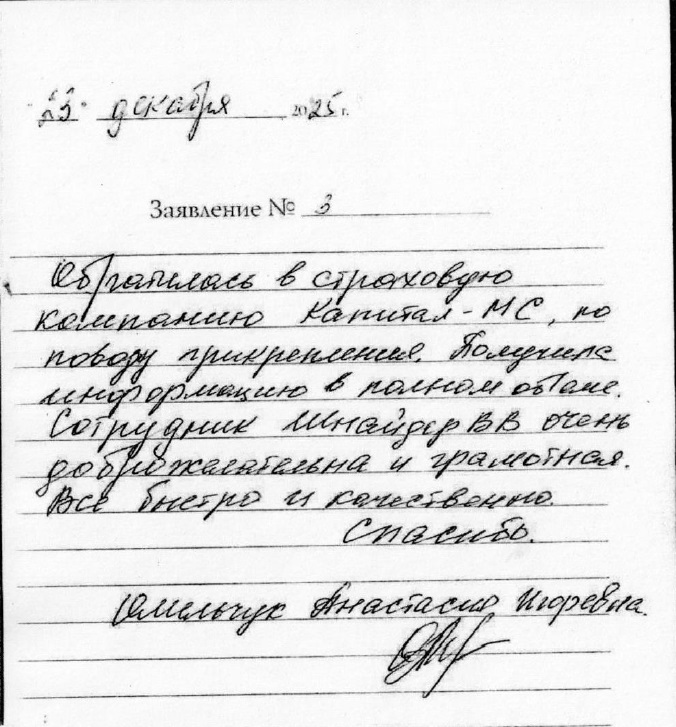 23 декабря 2025 г.
Заявление № 3
Обратилась в страховую
компанию Капитал-МС, по
поводу прикрепления. Получила
информацию в полном объеме.
Сотрудник Шнайдер ВВ очень
доброжелательна и грамотная.
Все быстро и качественно.
Спасибо.
Омельчук Анастасия Игоревна.